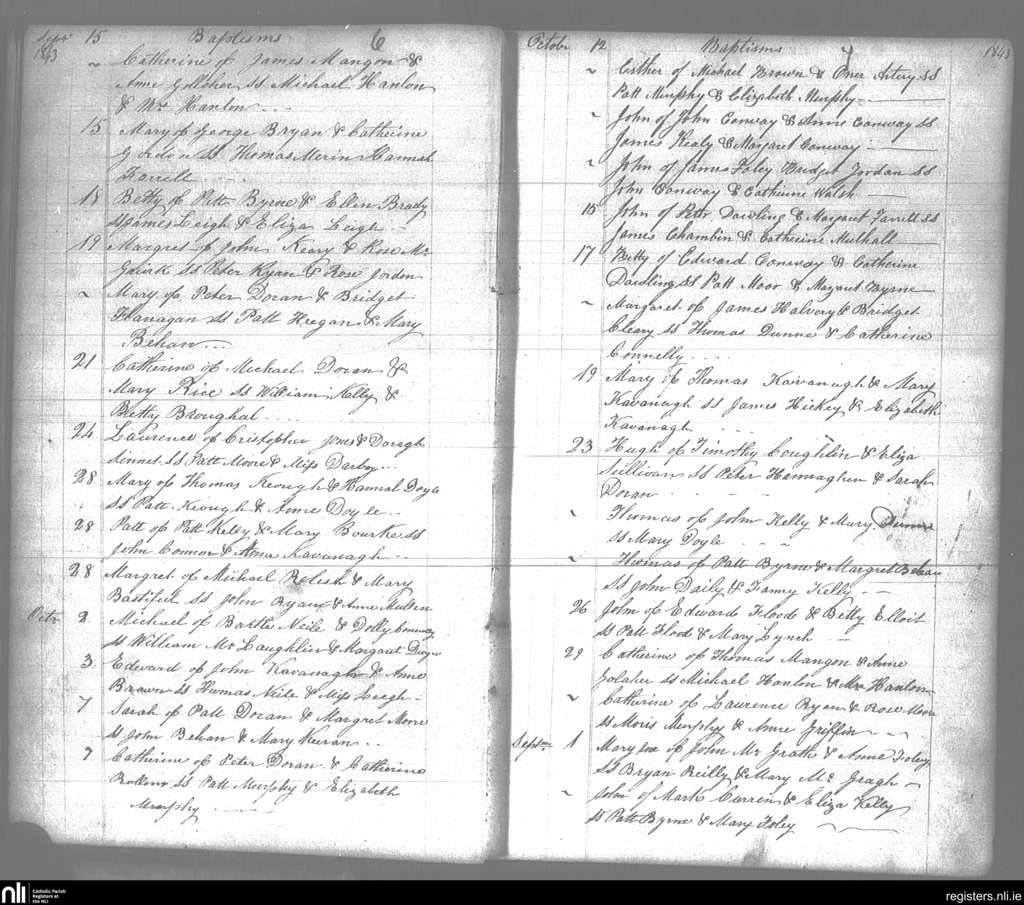 Septr 15 Baptisms 6
1843
" Catherine of James Mangon &
Anne Golaher ss Michael Hanlon
& Mrs Hanlon
15 Mary of George Bryan & Catherine
Gordon ss Thomas Merin Hannah
Farrell
18 Betty of Patt Byrne & Ellen Brady
ss James Leigh & Eliza Leigh
19 Margret of John Keary & Rose Mc
Guirk ss Peter Ryan & Rose Jordon
" Mary of Peter Doran & Bridget
Flanagan ss Patt Heegan & Mary
Behan
21 Catherine of Michael Doran &
Mary Rice ss William Kelly &
Betty Broughal
24 Laurence of Cristopher &
Sinnet ss Patt Moore & Miss Darby
28 Mary of Thomas Keough & Hannah Doyle
ss Patt Keough & Anne Doyle
28 Patt of Patt Kelly & Mary Bourke ss
John Connor & Anne Kavanagh
28 Margret of Michael & Mary
ss John Ryan & Anne Mullen
Octr 2 Michael of Bartle Neile & Dolly Conway
ss William Mc Laughlin & Margaret
3 Edward of John Kavanagh & Anne
Brown ss Thomas Neile & Miss Leigh
7 Sarah of Patt Doran & Margret Moore
ss John Behan & Mary Keeran
7 Catherine of Peter Doran & Catherine
ss Patt Murphy & Elizabeth
Murphy
Octobr 12 Baptisms 7 1843
" Esther of Michael Brown & Artery ss
Patt Murphy & Elizabeth Murphy
" John of John Conway & Anne Conway ss
James Healy & Margaret Conway
" John of James Foley Bridget Jordan ss
John Conway & Catherine Walsh
15 John of Peter Dowling & Margaret Farrell ss
James Chambin & Catherine Mulhall
17 Betty of Edward Conway & Catherine
Dowling ss Patt Moor & Margaret Byrne
" Margaret of James Halvery & Bridget
Cleary ss Thomas Dunne & Catherine
Connelly
19 Mary of Thomas Kavanagh & Mary
Kavanagh ss James Hickey & Elizabeth
Kavanagh
23 Hugh of Timothy Coughlin & Eliza
Sullivan ss Peter Hennaghen & Sarah
Doran
" Thomas of John Kelly & Mary Dunne
ss Mary Doyle
" Thomas of Patt Byrne & Margret Behan
ss John Daily & Fanny Kelly
26 John of Edward Flood & Betty Elloit
ss Patt Flood & Mary Lynch
29 Catherine of Thomas Mangon & Anne
Golaher ss Michael Hanlon & Mrs Hanlon
" Catherine of Laurence Ryan & Rose Moore
ss Moris Murphy & Anne Griffin
Septm 1 Mary of John Mc Grath & Anne Foley
ss Bryan Reilly & Mary Mc Gragh
" John of Mark Currin & Eliza Kelly
ss Patt Byrne & Mary Foley
nli Catholic Parish
Registers at
the NLI
registers.nli.ie